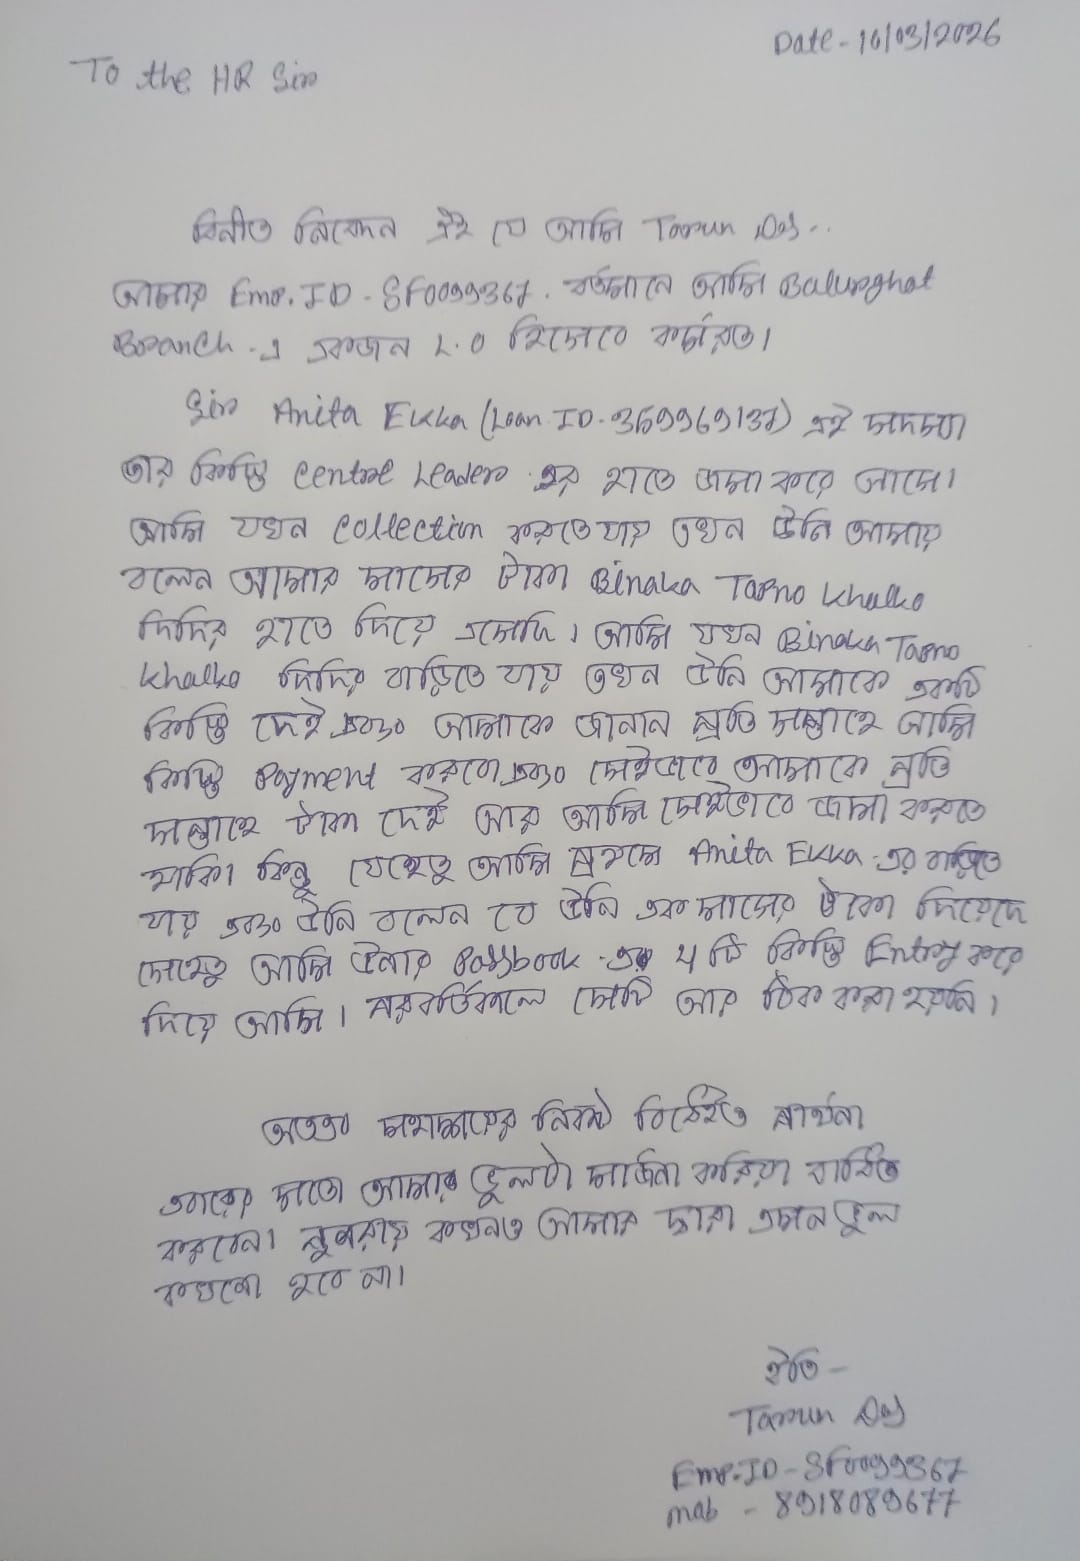 Date - 10/03/2026
To the HR Sir
বিনীত নিবেদন এই যে আমি Tarun Das..
আমার Emp. ID - SF0099367. বর্তমানে আমি Balurghat
Branch-এ একজন L.O হিসেবে কর্মরত।
Sir Anita Ekka (Loan ID - 359969137) এই সদস্যা
তার কিস্তি Centre Leader এর হাতে জমা করে আসে।
আমি যখন Collection করতে যায় তখন উনি আমায়
বলেন আমার মাসের টাকা Binaka Tarno Khalko
দিদির হাতে দিয়ে এসেছি। আমি যখন Binaka Tarno
Khalko দিদির বাড়িতে যায় তখন উনি আমাকে একটি
কিস্তি দেই এবং আমাকে জানান প্রতি সপ্তাহে আমি
কিস্তি Payment করবো এবং সেইভাবে আমাকে প্রতি
সপ্তাহে টাকা দেই আর আমি সেইভাবে জমা করতে
থাকি। কিন্তু যেহেতু আমি প্রথমে Anita Ekka-এর বাড়িতে
যায় এবং উনি বলেন যে উনি এক মাসের টাকা দিয়েছে
সেহেতু আমি উনার Passbook-এর 4 টি কিস্তি Entry করে
দিয়ে আসি। পরবর্তিকালে সেটি আর ঠিক করা হয়নি।
অতএব মহাশয়ের নিকট বিঠেইত প্রার্থনা
এবারের মতো আমার ভুলটা মার্জনা করিয়া বাধিত
করবেন। পুনরায় কখনও আমার দ্বারা এমন ভুল
কখনো হবে না।
ইতি -
Tarun Das
Emp. ID - SF0099367
mob - 8918089677